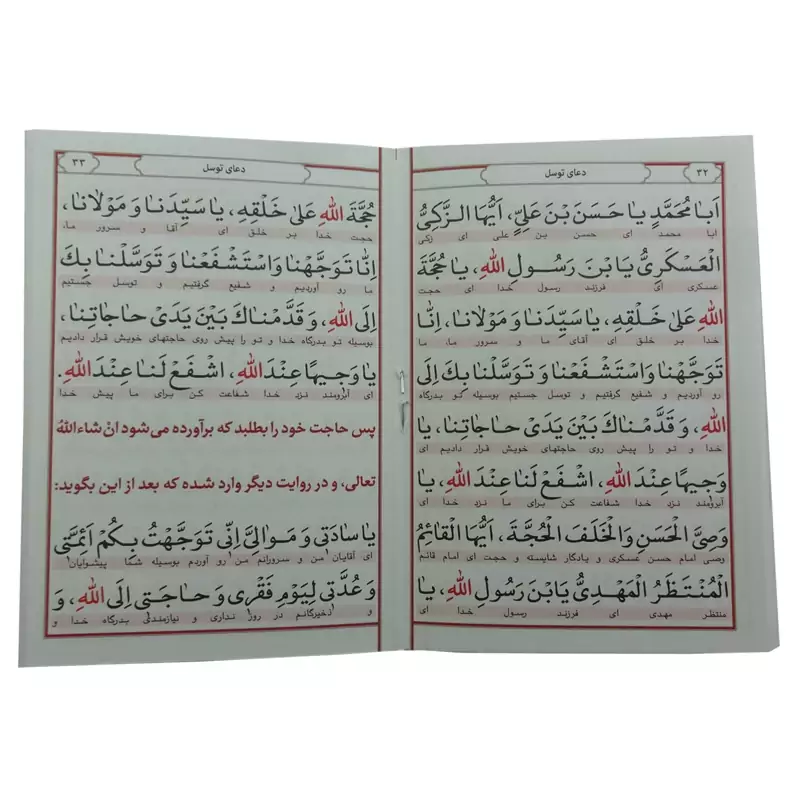 ۳۲
دعای توسل
اَبا مُحَمَّدٍ یا حَسَنَ بْنَ عَلِیٍّ، اَیُّهَا الزَّکِیُّ
ابا محمد ای حسن بن علی ای زکی
الْعَسْکَرِیُّ یَا بْنَ رَسُولِ اللهِ، یا حُجَّةَ
عسکری ای فرزند رسول خدا ای حجت
اللهِ عَلیٰ خَلْقِهِ، یا سَیِّدَنا وَ مَوْلانا، اِنّا
خدا بر خلق ای آقای ما و سرور ما، ما
تَوَجَّهْنا وَ اسْتَشْفَعْنا وَ تَوَسَّلْنا بِکَ اِلَی
رو آوردیم و شفیع گرفتیم و توسل جستیم بوسیله تو بدرگاه
اللهِ، وَ قَدَّمْناکَ بَیْنَ یَدَیْ حاجاتِنا، یا
خدا و تو را پیش روی حاجتهای خویش قرار دادیم ای
وَجیهاً عِنْدَ اللهِ، اشْفَعْ لَنا عِنْدَ اللهِ، یا
آبرومند نزد خدا شفاعت کن برای ما نزد خدا ای
وَصِیَّ الْحَسَنِ وَ الْخَلَفَ الْحُجَّةَ، اَیُّهَا الْقائِمُ
وصی امام حسن عسکری و یادگار شایسته و حجت ای امام قائم
الْمُنْتَظَرُ الْمَهْدِیُّ یَا بْنَ رَسُولِ اللهِ، یا
منتظر مهدی ای فرزند رسول خدا ای
۳۳
دعای توسل
حُجَّةَ اللهِ عَلیٰ خَلْقِهِ، یا سَیِّدَنا وَ مَوْلانا،
حجت خدا بر خلق ای آقا و سرور ما،
اِنّا تَوَجَّهْنا وَ اسْتَشْفَعْنا وَ تَوَسَّلْنا بِکَ
ما رو آوردیم و شفیع گرفتیم و توسل جستیم
اِلَی اللهِ، وَ قَدَّمْناکَ بَیْنَ یَدَیْ حاجاتِنا،
بوسیله تو بدرگاه خدا و تو را پیش روی حاجتهای خویش قرار دادیم
یا وَجیهاً عِنْدَ اللهِ، اشْفَعْ لَنا عِنْدَ اللهِ.
ای آبرومند نزد خدا شفاعت کن برای ما پیش خدا
پس حاجت خود را بطلبد که برآورده می‌شود انْ شاءَ اللهُ
تعالی، و در روایت دیگر وارد شده که بعد از این بگوید:
یا سادَتی وَ مَوالِیَّ اِنّی تَوَجَّهْتُ بِکُمْ اَئِمَّتی
ای آقایان من و سرورانم من رو آوردم بوسیله شما پیشوایان
وَ عُدَّتی لِیَوْمِ فَقْری وَ حاجَتی اِلَی اللهِ، وَ
و ذخیرگانم در روز نداری و نیازمندی بدرگاه خدا و